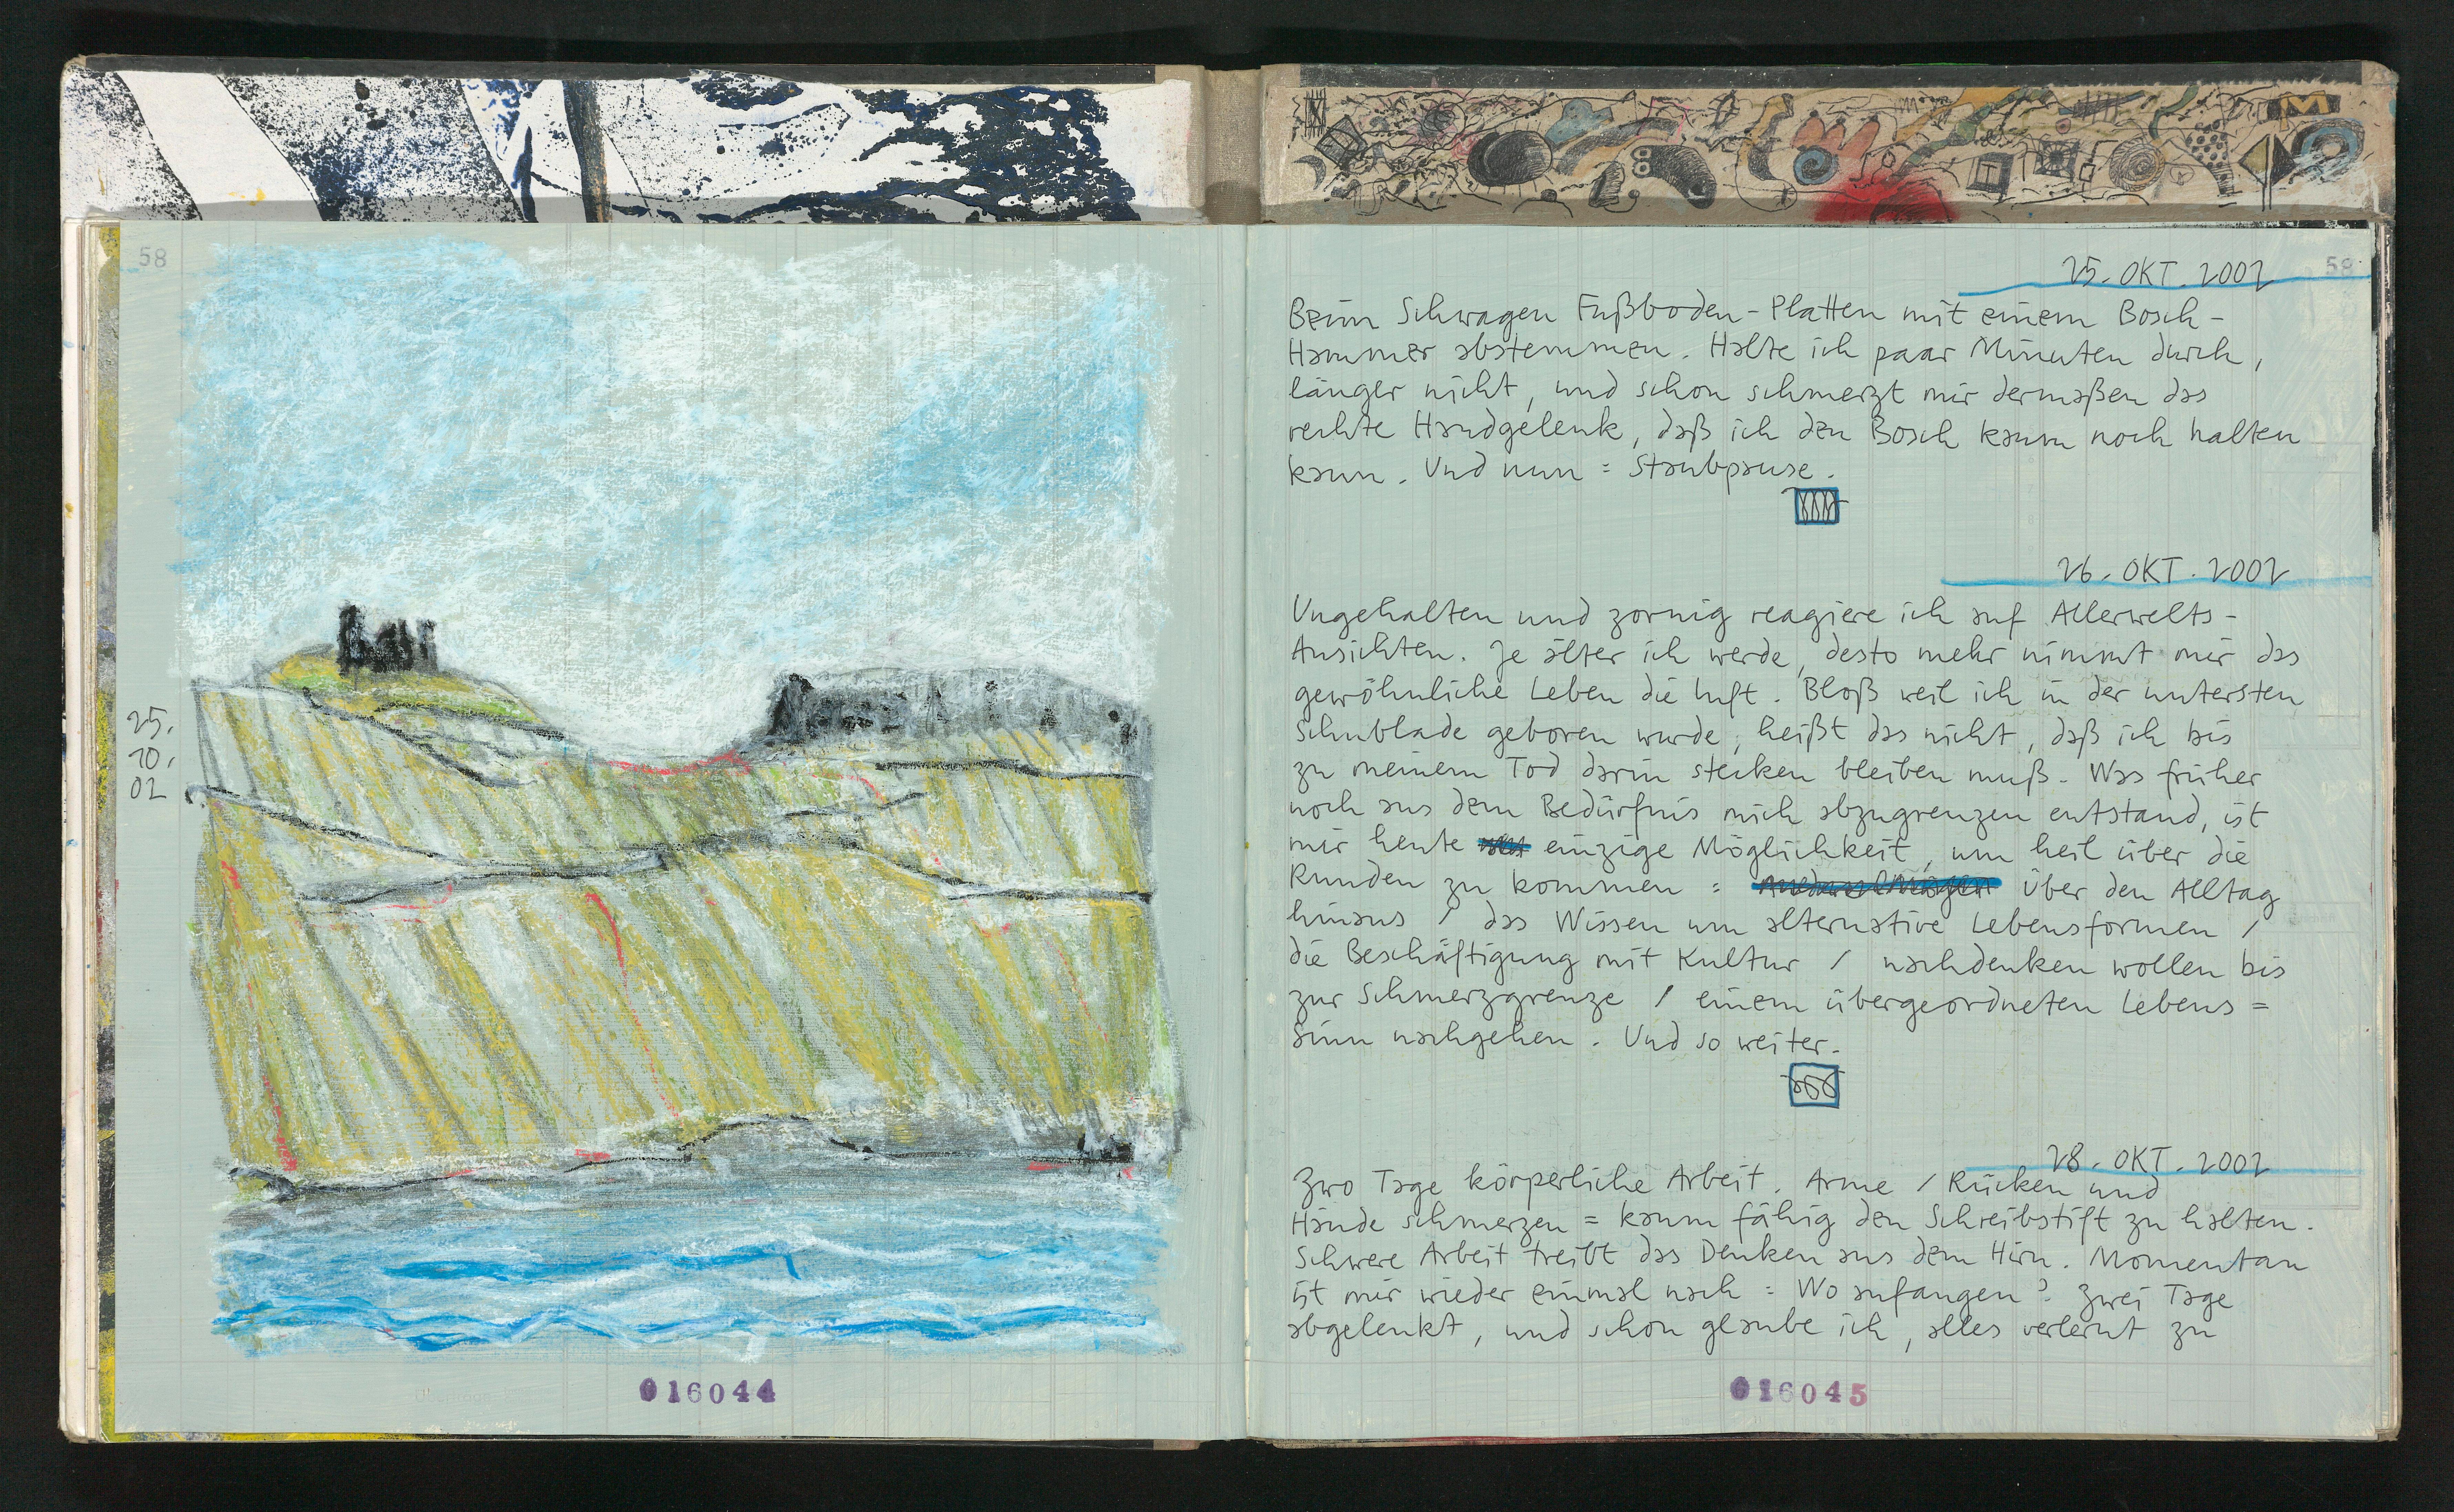 58
25.
10.
02
016044
58
25. OKT. 2002
Beim Schwagen Fußboden-Platten mit einem Bosch-
Hammer abstemmen. Halte ich paar Minuten durch,
länger nicht, und schon schmerzt mir dermaßen das
rechte Handgelenk, daß ich den Bosch kaum noch halten
kann. Und nun = Staubpause.
26. OKT. 2002
Ungehalten und zornig reagiere ich auf Allerwelts-
Ansichten. Je älter ich werde, desto mehr nimmt mir das
gewöhnliche Leben die Luft. Bloß weil ich in der untersten
Schublade geboren wurde, heißt das nicht, daß ich bis
zu meinem Tod darin stecken bleiben muß. Was früher
noch aus dem Bedürfnis mich abzugrenzen entstand, ist
mir heute einzige Möglichkeit, um heil über die
Runden zu kommen : über den Alltag
hinaus / das Wissen um alternative Lebensformen /
die Beschäftigung mit Kultur / nachdenken wollen bis
zur Schmerzgrenze / einem übergeordneten Lebens=
Sinn nachgehen. Und so weiter.
28. OKT. 2002
Zwo Tage körperliche Arbeit. Arme / Rücken und
Hände schmerzen = kaum fähig den Schreibstift zu halten.
Schwere Arbeit treibt das Denken aus dem Hirn. Momentan
ist mir wieder einmal nach : Wo anfangen? Zwei Tage
abgelenkt, und schon glaube ich, alles verlernt zu
016045